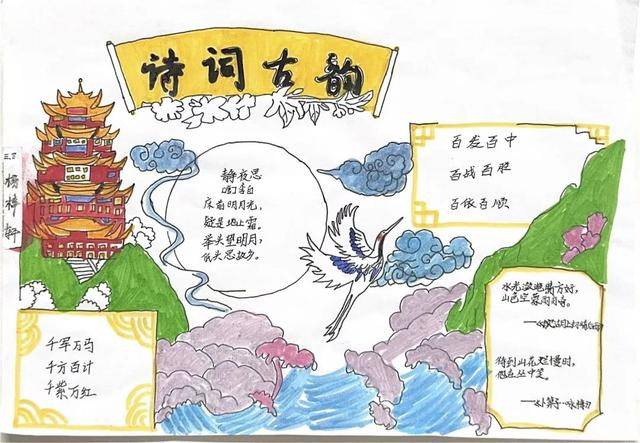 诗词古韵
三.5
杨梓轩
静夜思
李白
床前明月光，
疑是地上霜。
举头望明月，
低头思故乡。
百发百中
百战百胜
百依百顺
千军万马
千方百计
千紫万红
水光潋滟晴方好，
山色空蒙雨亦奇。
待到山花烂漫时，
她在丛中笑。
——卜算子·咏梅